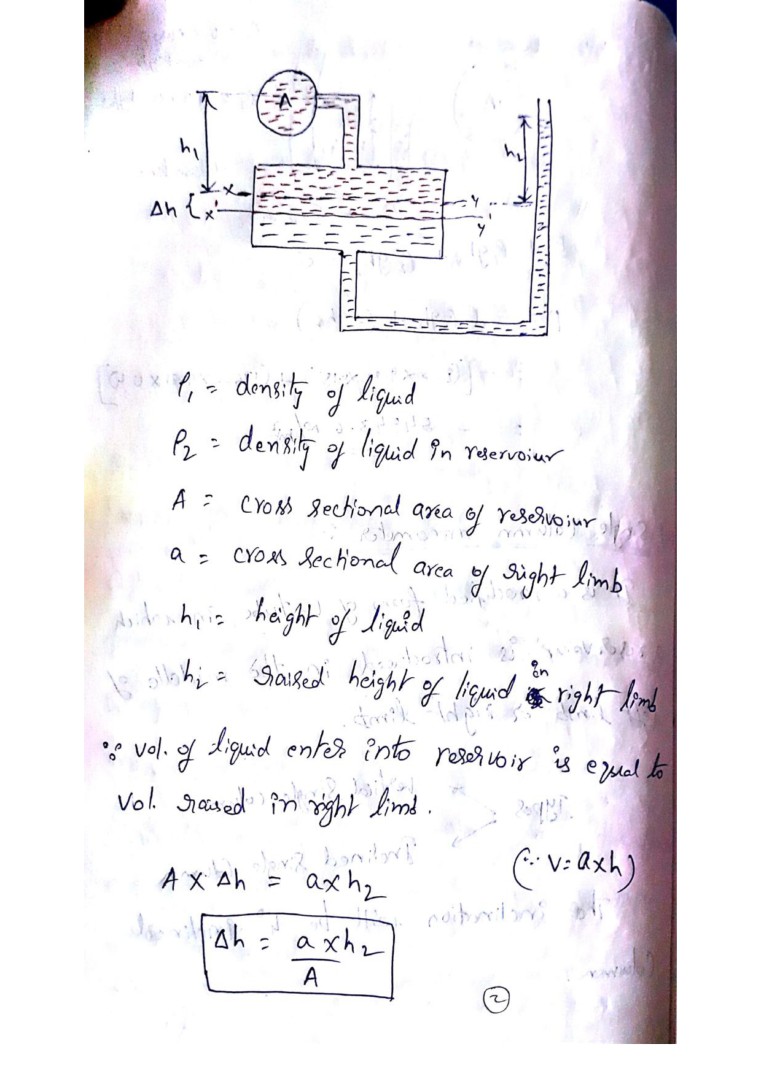 A
h₁
h₂
x
y
Δh { x'
y'
ρ₁ = density of liquid
ρ₂ = density of liquid in reservoiur
A = cross sectional area of reservoiur
a = cross sectional area of right limb
h₁ = height of liquid
h₂ = raised height of liquid in right limb
∵ vol. of liquid enter into reservoir is equal to
vol. raised in right limb.
A x Δh = a x h₂ (∵ V = a x h)
Δh = a x h₂
A
2